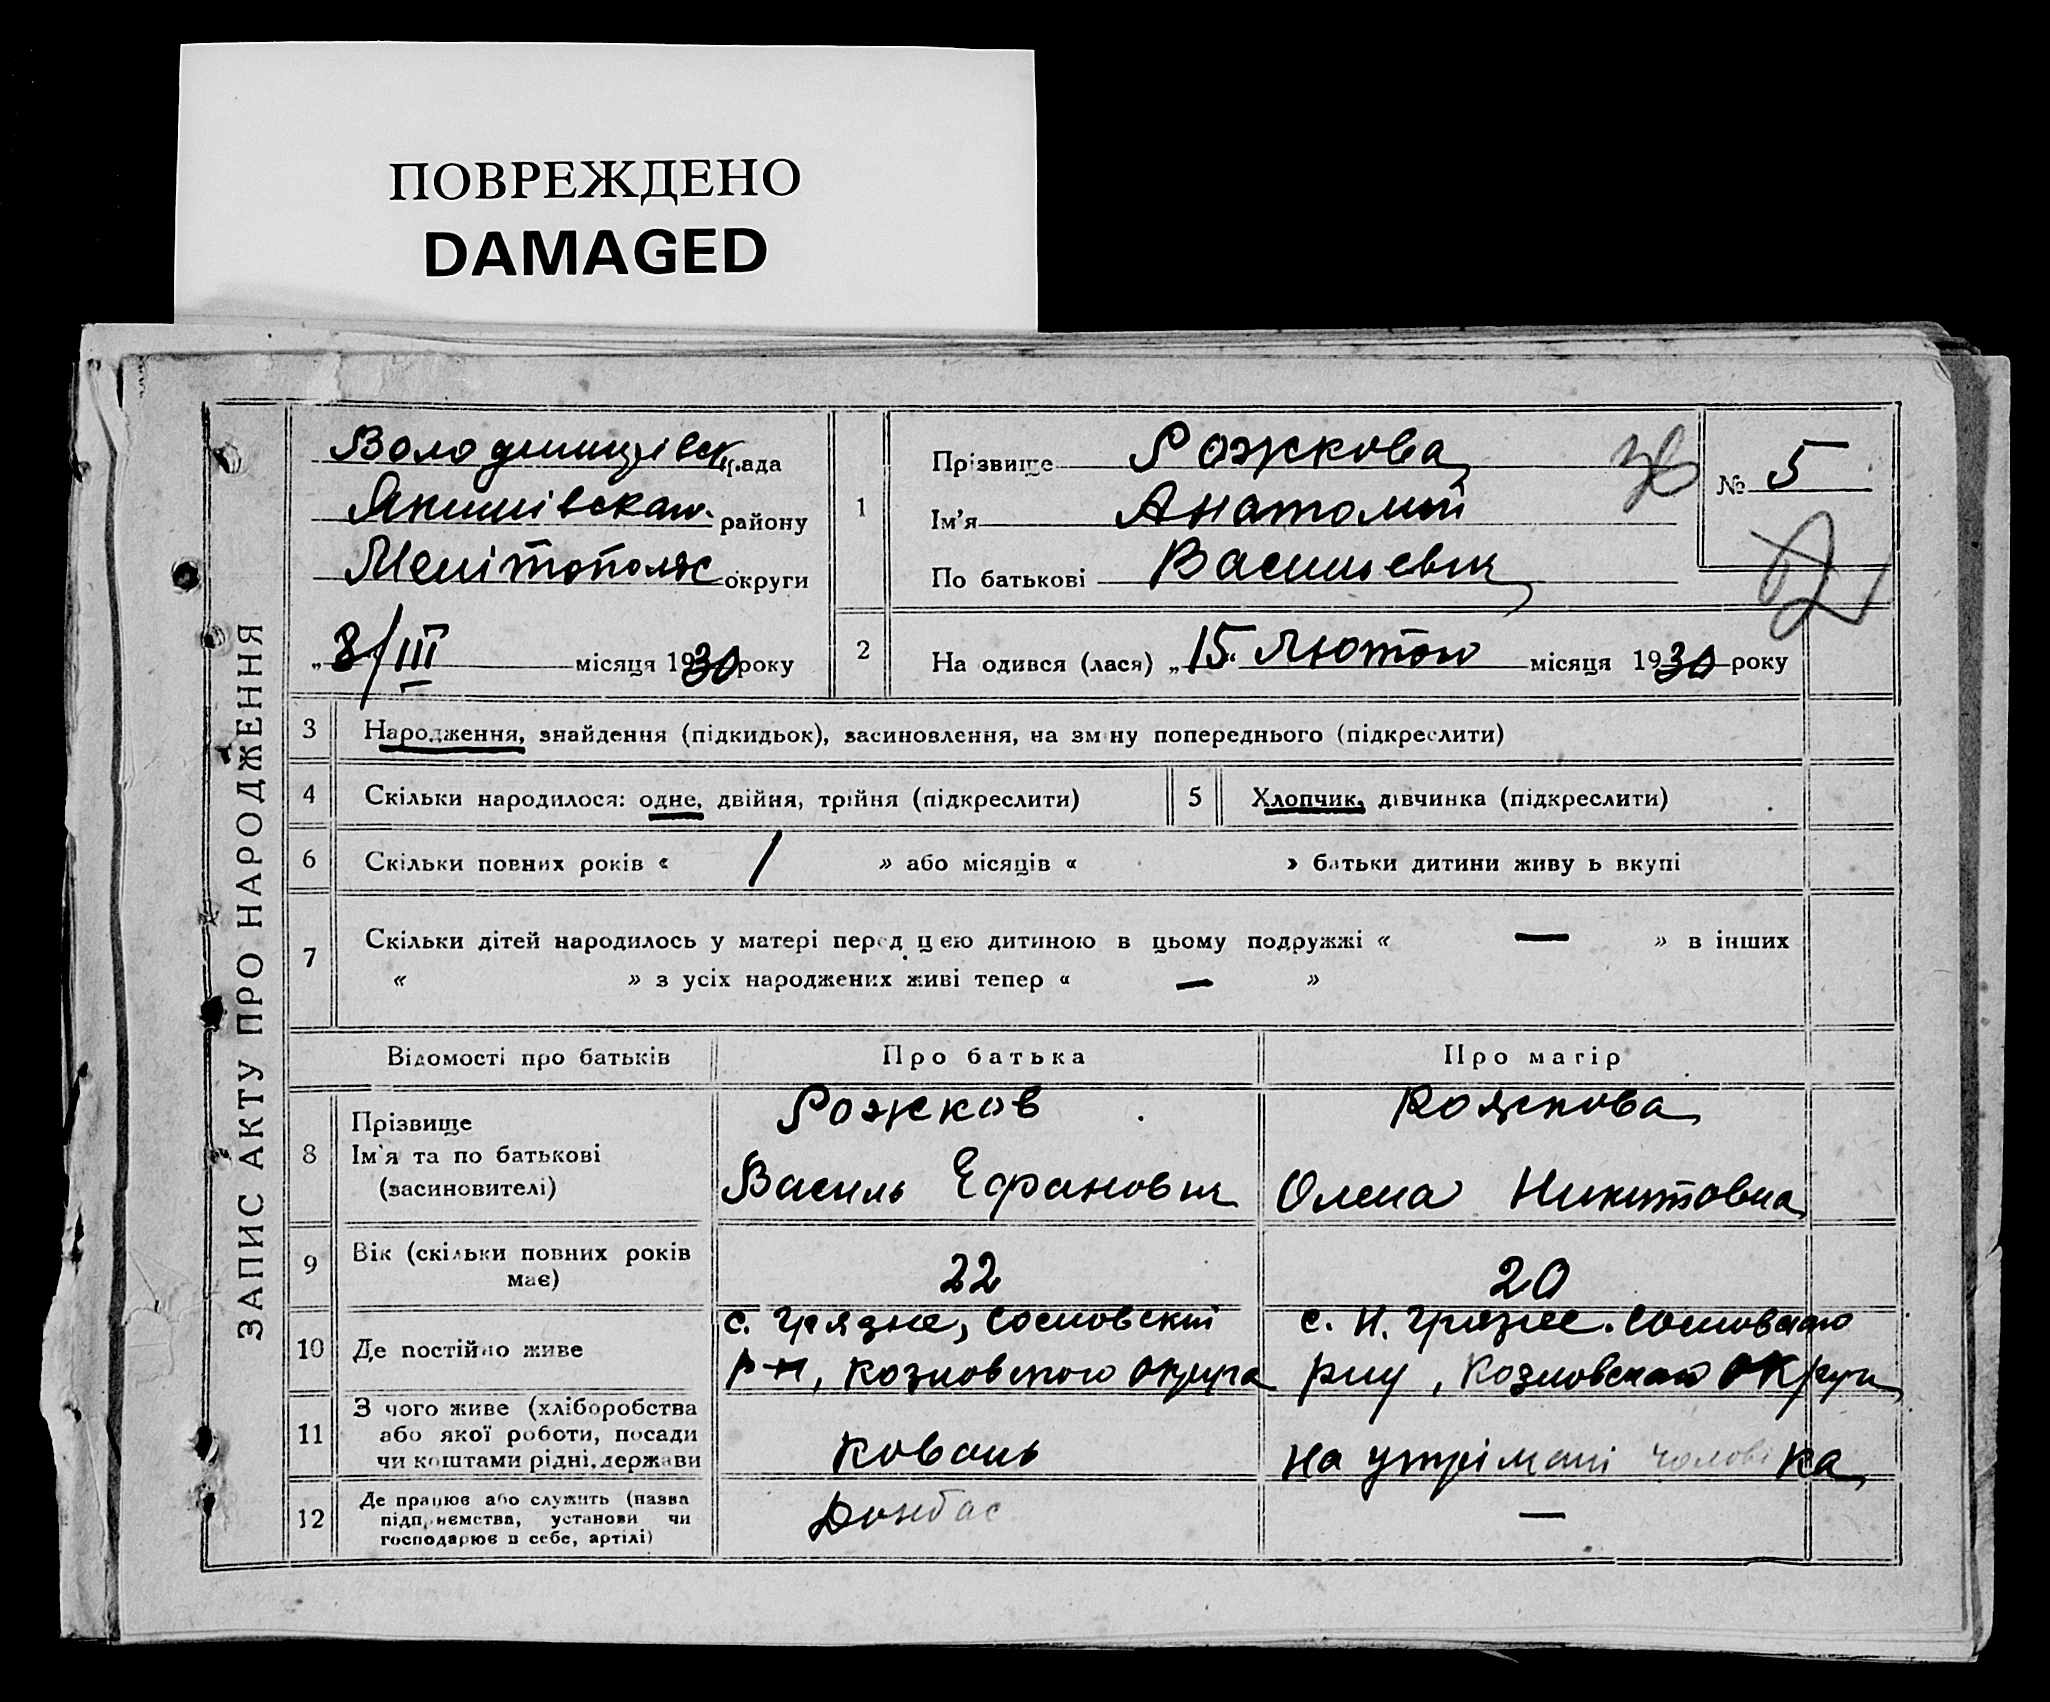 ПОВРЕЖДЕНО
DAMAGED
ЗАПИС АКТУ ПРО НАРОДЖЕННЯ
рада
району
Мелітопольс округи
„8/III місяця 1930 року
1
Прізвище Рожкова
Ім'я Анатолий
По батькові Васильевич
№ 5
2
На одився (лася) „15. Лютого місяця 1930 року
3 Народження, знайдення (підкидьок), засиновлення, на зм ну попереднього (підкреслити)
4 Скільки народилося: одне, двійня, трійня (підкреслити)
5 Хлопчик, дівчинка (підкреслити)
6 Скільки повних років « / » або місяців « » батьки дитини живу ь вкупі
7 Скільки дітей народилось у матері перед цею дитиною в цьому подружжі « — » в інших
« » з усіх народжених живі тепер « — »
Відомості про батьків
Про батька
Про матір
8
Прізвище
Ім'я та по батькові
(засиновителі)
Рожков
Василь Ефанович
Рожкова
Олена Никитовна
9
Вік (скільки повних років
має)
22
20
10 Де постійно живе
с. Грязне, Сосновский
р-н, Козловского округа
с. Н. Грязне. Сосновского
рну, Козловского округи
11
З чого живе (хліборобства
або якої роботи, посади
чи коштами рідні, держави
Коваль
на утрімані чоловіка
12
Де працює або служить (назва
підприємства, установи чи
господарює в себе, артілі)
Донбас
—